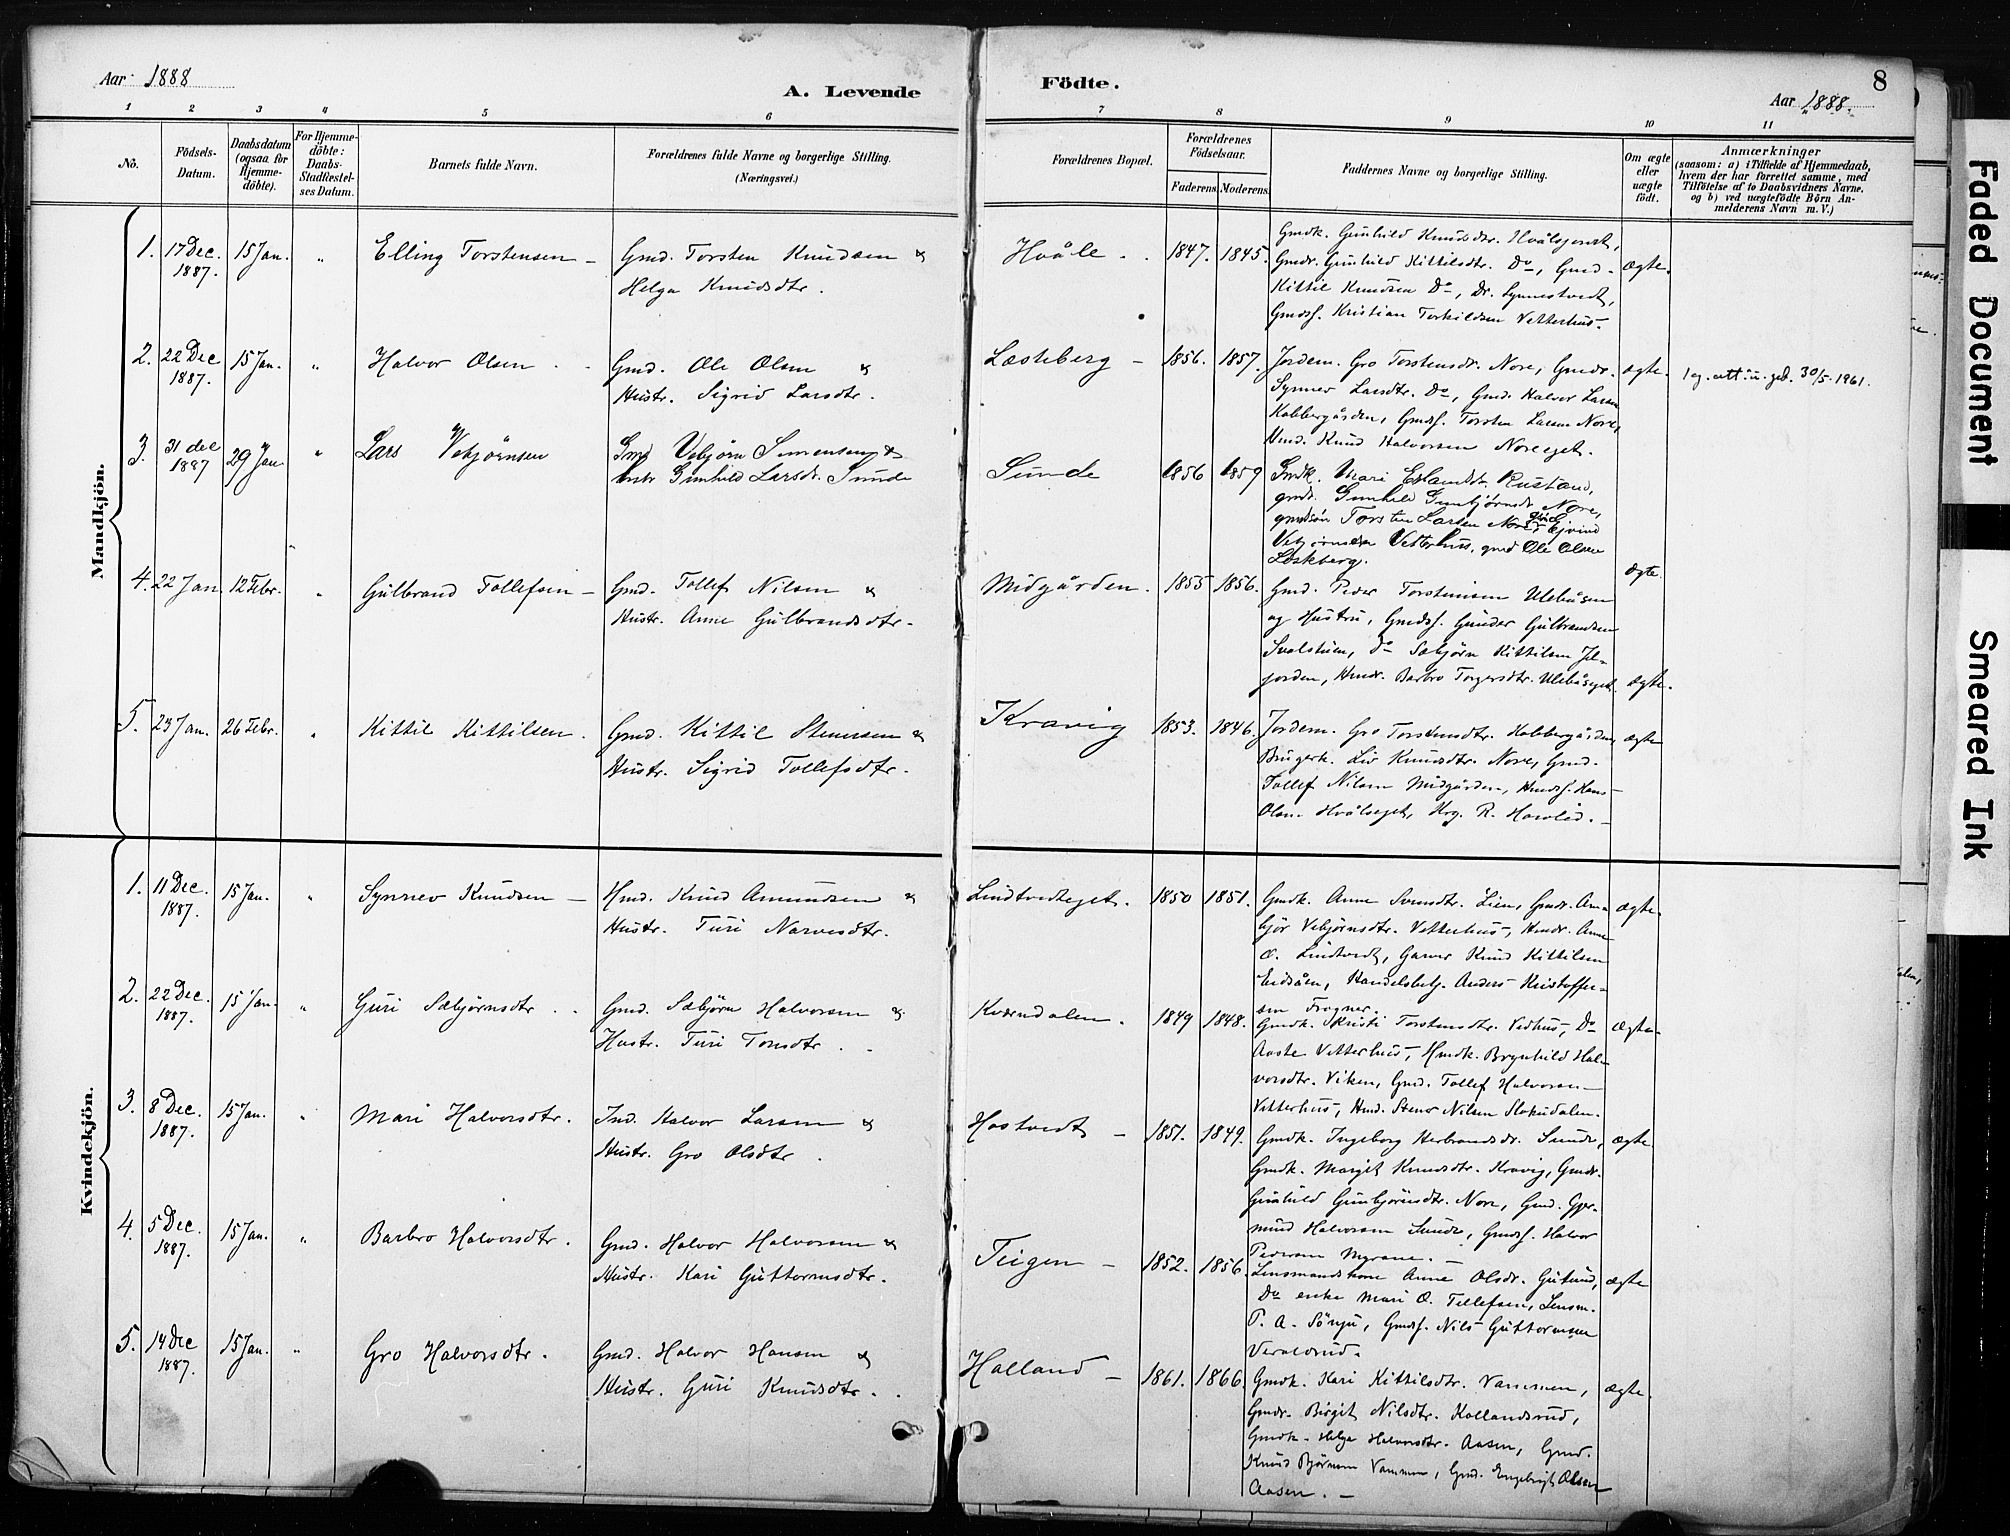 Aar 1888
A. Levende
Födte.
8
Aar 1888.
1 2 3 4 5 6 7 8 9 10 11
Nö.
Födsels-
Datum.
Daabsdatum
(ogsaa for
Hjemme-
döbte).
For Hjemme-
döbte:
Daabs-
Stadfæstel-
ses Datum.
Barnets fulde Navn.
Forældrenes fulde Navne og borgerlige Stilling.
(Næringsvei.)
Forældrenes Bopæl.
Forældrenes
Födselsaar.
Faderens. Moderens.
Faddernes Navne og borgerlige Stilling.
Om ægte
eller
uægte
födt.
Anmærkninger
(saasom: a) i Tilfælde af Hjemmedaab,
hvem der har forrettet samme, med
Tilföielse af to Daabsvidners Navne.
og b) ved uægtefödte Börn An-
melderens Navn m. V.)
Mandkjön.
1. 17 Dec. 1887. 15 Jan. " Elling Torstensen –
Gmd. Torsten Knudsen &
Helga Knudsdtr.
Hvåle . . 1847. 1845.
Gmdk. Gunhild Knudsdtr. Hvålsjordet,
Gmdr. Gunhild Kittilsdtr. Do, Gmd.
Kittil Knudsen Do, Dr. Synnestvedt,
Gmdsf. Kristian Torkildsen Vetterhus.
ægte.
2. 22 Dec 1887. 15 Jan. " Halvor Olsen . .
Gmd. Ole Olsen &
Hustr. Sigrid Larsdtr.
Læsteberg – 1856. 1857.
Jordem. Gro Torstensdr. Nore, Gmdr.
Synnev Larsdtr. Do, Gmd. Halvor Larsen
Kobbergården, Gmdsf. Torsten Larsen Nore,
Hmd. Knud Halvorsen Noreeget.
ægte.
1 eg. att. u. gd. 30/5-1961.
3. 31 dec 1887 29 Jan " Lars Vebjørnsen
Gmd Vebjørn Simensen &
hstr Gunhild Larsdr. Sunde
Sunde 1856 1859
Gmdk. Mari Eslamdt. Rustand,
gmdr. Gunhild Gunbjørnsdr Nore,
gmdsøn Torsten Larsen Nore, gmd Ejvind
Vebjørnsen Vetterhus, gmd Ole Olsen
Læskberg.
ægte.
4. 22 Jan. 12 Febr. " Gulbrand Tollefsen –
Gmd. Tollef Nilsen &
Hustr. Anne Gulbrandsdtr.
Midgården. 1855 1856.
Gmd. Peder Torstensen Ulebåsen
og Hustru, Gmdsf. Gunder Gulbrandsen
Svalstuen, Do Sæbjørn Kittilsen Jel-
jorden, Hmdr. Barbro Torgersdtr. Ulebåseget.
ægte.
5. 23 Jan. 26 Febr. " Kittil Kittilsen.
Gmd. Kittil Stenersen &
Hustr. Sigrid Tollefsdtr.
Kravig 1853. 1846.
Jordem. Gro Torstensdtr. Kobbergården,
Brugerk. Liv Knudsdtr. Nore, Gmd.
Tollef Nilsen Midgården, Hmdsf. Hans
Olsen Hvålseget, Ung. R.
ægte
Kvindekjön.
1. 11 Dec. 1887. 15 Jan. " Synnev Knudsen –
Hmd. Knud Amundsen &
Hustr. Turi Narvesdtr.
Lindtvedteget. 1850 1851.
Gmdk. Anne Svensdtr. Lien, Gmdr. Am-
björ Vebjørnsdtr. Vetterhus, Hmdr. Anne
O. Lindtvedt, Garver Knud Kittilsen
Eidsåen, Handelsbetj. Anders Kristoffer-
sen Frogner.
ægte.
2. 22 Dec. 1887. 15 Jan. " Guri Sæbjørnsdtr. . .
Gmd. Sæbjørn Halvorsen &
Hustr. Turi Tonsdtr. .
Kværndalen. 1849 1848.
Gmdk. Kristi Torstensdtr. Vedhus, Do
Aaste Vetterhus, Hmdk. Brynhild Hal-
vorsdtr. Viken, Gmd. Tollef Halvorsen
Vetterhus, Hmd. Stener Nilsen Slokudalen.
ægte.
3. 8 Dec. 1887. 15 Jan. " Mari Halvorsdtr.
Ind. Halvor Larsen &
Hustr. Gro Olsdtr.
Hostvedt – 1851. 1849.
Gmdk. Ingeborg Herbrandsdr. Sunde,
Gmdk. Margit Knudsdtr. Kravig, Gmdr.
Gunhild Gunbjörnsdtr. Nore, Gmd. Gjer-
mund Halvorsen Sunde, Gmdsf. Halvor
Pedersen Myrane.
ægte
4. 5 Dec. 1887. 15 Jan. " Barbro Halvorsdtr.
Gmd. Halvor Halvorsen &
Hustr. Kari Guttormsdtr.
Teigen – 1852. 1856.
Lensmandskone Anne Olsdr. Gulund,
Do enke Mari O. Tollefsen, Lensm.
P. A. Sönju, Gmdsf. Nils Guttormsen
Veraldrud.
ægte
5. 14 Dec 1887. 15 Jan. " Gro Halvorsdtr.
Gmd. Halvor Hansen &
Hustr. Guri Knudsdtr. .
Halland – 1861. 1866.
Gmdk. Kari Kittilsdtr. Vammen,
Gmdr. Birgit Nilsdtr. Kollandsrud,
Gmdk. Helga Halvorsdtr. Aasen, Gmd.
Knud Bjørnsen Vammen, Gmd. Engebrigt Olsen
Aasen. –
ægte.
Faded Document
Smeared Ink